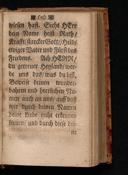 wiesen hast. Siehe HErr
dein Name heist Rath/
Krafft/ starcker Gott/ Held/
ewiger Vater und Fürst des
Friedens. Ach HERR,
du getreuer Heyland/ wer-
de uns das/ was du heist,
Beweise deinen wunder-
bahren und herrlichen Na-
men auch an uns/ auff daß
wir durch deinen Namen
deine Liebe recht erkennen
und durch diese